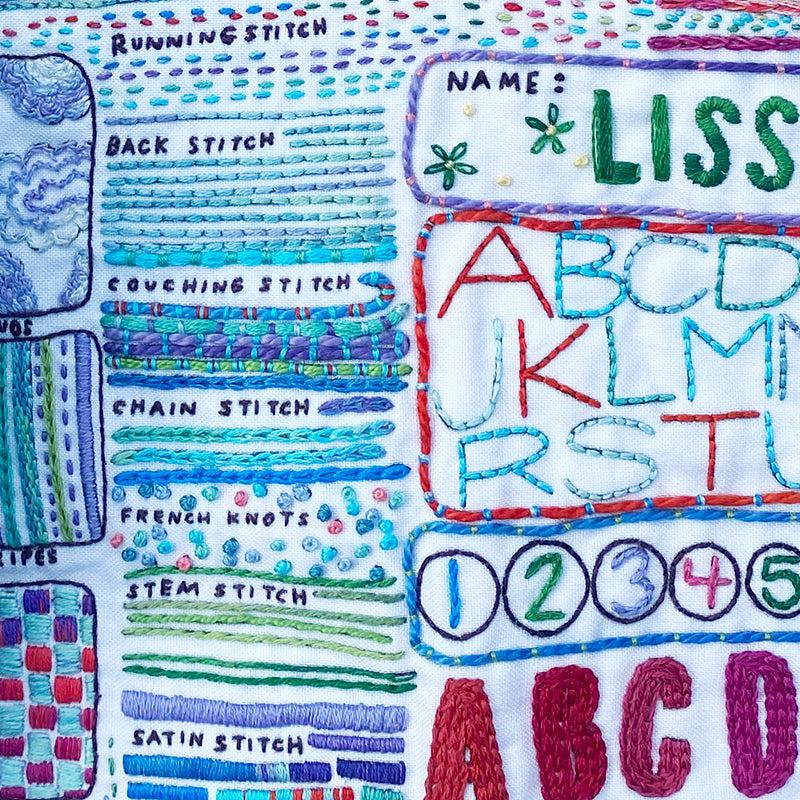 RUNNING STITCH
NAME:
LISS
BACK STITCH
ABCD
COUCHING STITCH
JKLM
CHAIN STITCH
RSTU
FRENCH KNOTS
1 2 3 4 5
STEM STITCH
ABCD
SATIN STITCH